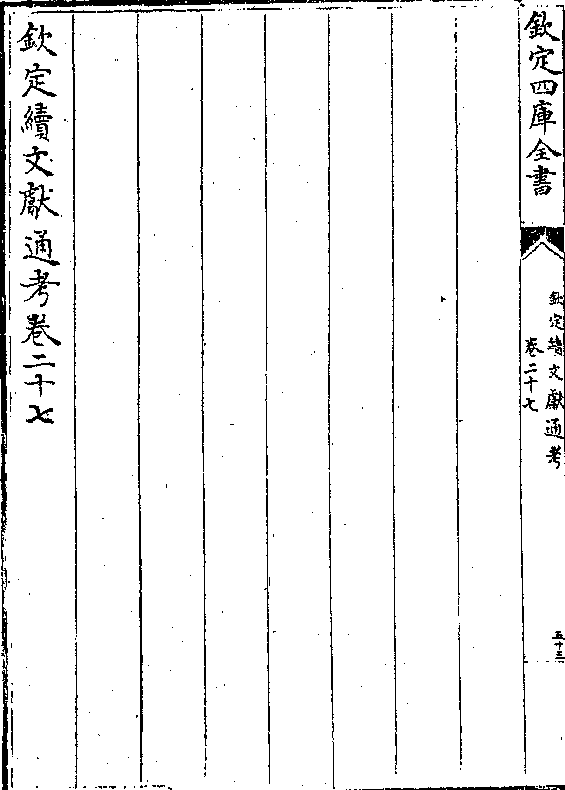 欽定四庫全書
欽定續文獻通考
卷二十七
五十三
欽定續文獻通考卷二十七